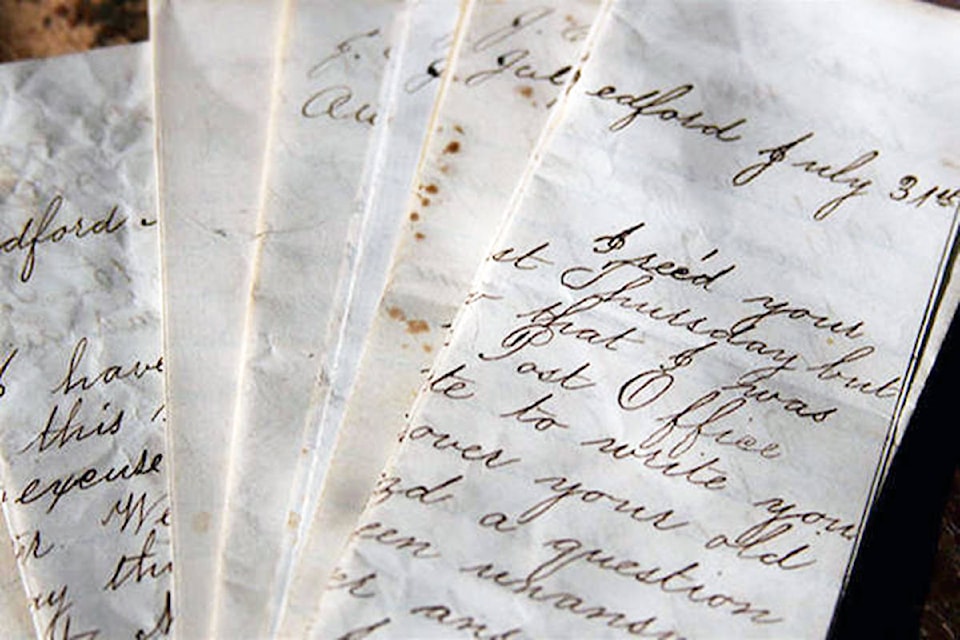 dford
I have
this
excuse
r. We
ay thi
J.
Au
J.
J. Jul
edford July 31st
I rec'd your
st Thursday but
that I was
Post Office
te to write you
over your old
nd a question
een unansw
er ans